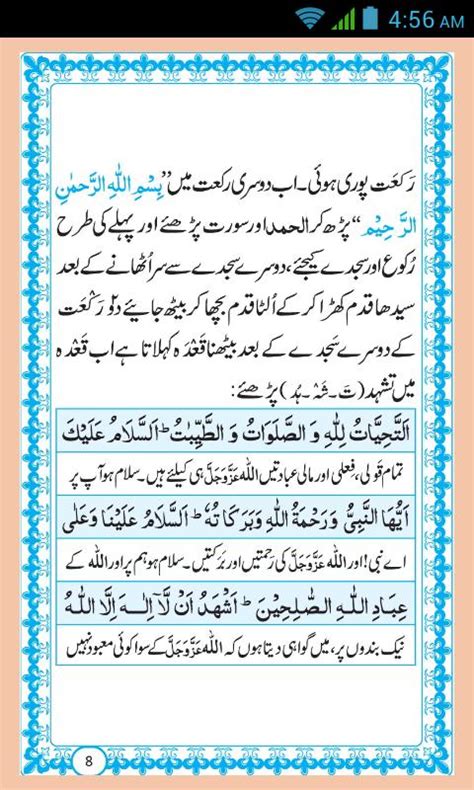 4:56 AM
رَکعَت پوری ہوئی۔ اب دوسری رکعت میں ’’بِسْمِ اللّٰہِ الرَّحمٰنِ
الرَّحِیْم‘‘ پڑھ کر الحمد اور سورت پڑھئے اور پہلے کی طرح
رُکوع اور سجدے کیجئے، دوسرے سجدے سے سر اُٹھانے کے بعد
سیدھا قدم کھڑا کر کے اُلٹا قدم بچھا کر بیٹھ جایئے دو رَکْعَت
کے دوسرے سَجدے کے بعد بیٹھنا قَعْدَہ کہلاتا ہے اب قَعْدہ
میں تشہد (تَ۔شَہْ۔ہُد) پڑھئے:
اَلتَّحِیَّاتُ لِلّٰہِ وَ الصَّلَوَاتُ وَ الطَّیِّبٰتُ ؕ اَلسَّلَامُ عَلَیْكَ
تمام قَولی، فعلی اور مالی عبادتیں اللہ عَزَّوَجَلَّ ہی کیلئے ہیں۔ سلام ہو آپ پر
اَیُّھَا النَّبِیُّ وَرَحْمَۃُ اللّٰہِ وَبَرَکَاتُہٗ ؕ اَلسَّلَامُ عَلَیْنَا وَعَلٰی
اے نبی! اور اللہ عَزَّوَجَلَّ کی رَحمتیں اور بَرَکتیں۔ سلام ہو ہم پر اور اللہ کے
عِبَادِ اللّٰہِ الصّٰلِحِیْنَ ؕ اَشْھَدُ اَنْ لَّا اِلٰـہَ اِلَّا اللّٰہُ
نیک بندوں پر، میں گواہی دیتا ہوں کہ اللہ عَزَّوَجَلَّ کے سوا کوئی معبود نہیں
8